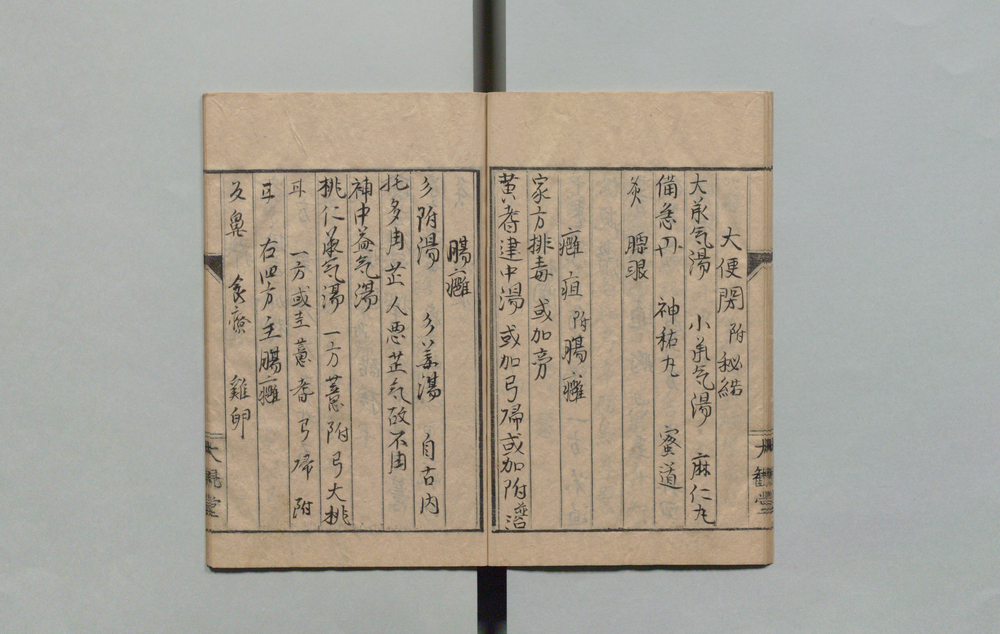 大便閉 附秘結
大承气湯 小承气湯 麻仁丸
備急円 神祐丸 蜜道
灸 腰眼
癰疽 附腸癰
家方排毒 或加
黄耆建中湯 或加弓帰或加附
腸癰
附湯 姜湯 自古内
托多用芷人悪芷气故不用
補中益气湯
桃仁承气湯 一方薏附弓大桃
耳 一方或圭薏耆弓帰附
耳 右四方主腸癰
反鼻 食療 雞卵
大観堂
大観堂